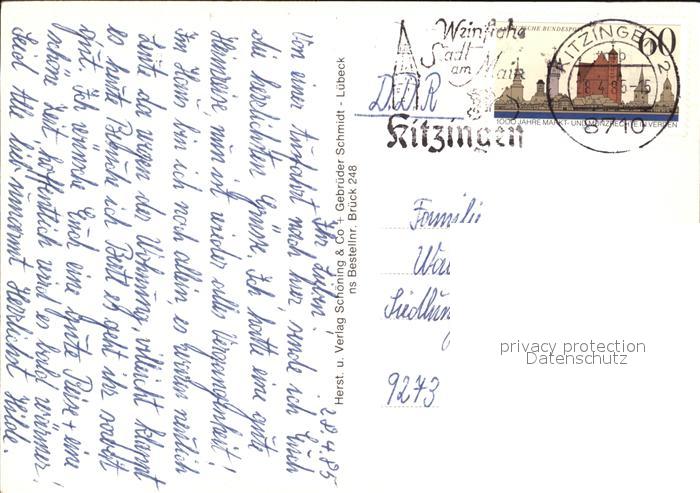 28.4.85
Ihr Lieben!
Von einer Durfahrt nach hier, sende ich Euch
die herzlichsten Grüße. Ich hatte eine gute
Heimreise, nun ist wieder alles Vergangenheit!
Im Haus bin ich noch allein es kommen neulich
Leute da wegen der Wohnung, vielleicht klappt
es heute. Brüde ich Bett es geht ihr soweit
gut. Ich wünsche Euch eine gute Reise + eine
schöne Zeit, hoffentlich wird es bald wärmer!
Seid Alle lieb umarmt Herzlichst Hilde.
Herst. u. Verlag Schöning & Co + Gebrüder Schmidt - Lübeck
ns Bestellnr. Brück 248
Weinfrohe
Stadt
am Main
Kitzingen
DEUTSCHE BUNDESPOST
60
1000 JAHRE MARKT- UND MÜNZRECHT IN VERDEN
KITZINGEN 2
8710
DDR
Familie
Siedlun
9273
privacy protection
Datenschutz